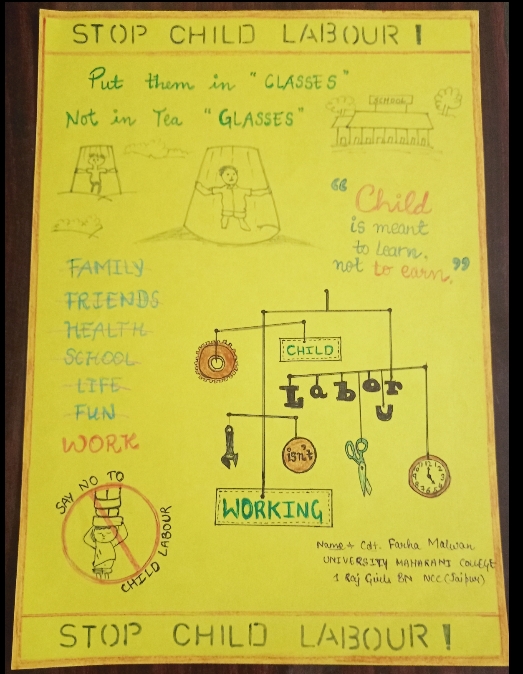 STOP CHILD LABOUR!
Put them in "CLASSES"
Not in Tea "GLASSES"
SCHOOL
"Child
is meant
to learn,
not to earn."
FAMILY
FRIENDS
HEALTH
SCHOOL
LIFE
FUN
WORK
CHILD
Labor
U
isn't
WORKING
SAY NO TO
CHILD LABOUR
Name → Cdt. Farha Malwan
UNIVERSITY MAHARANI COLLEGE
1 Raj Girls BN NCC (Jaipur)
STOP CHILD LABOUR!